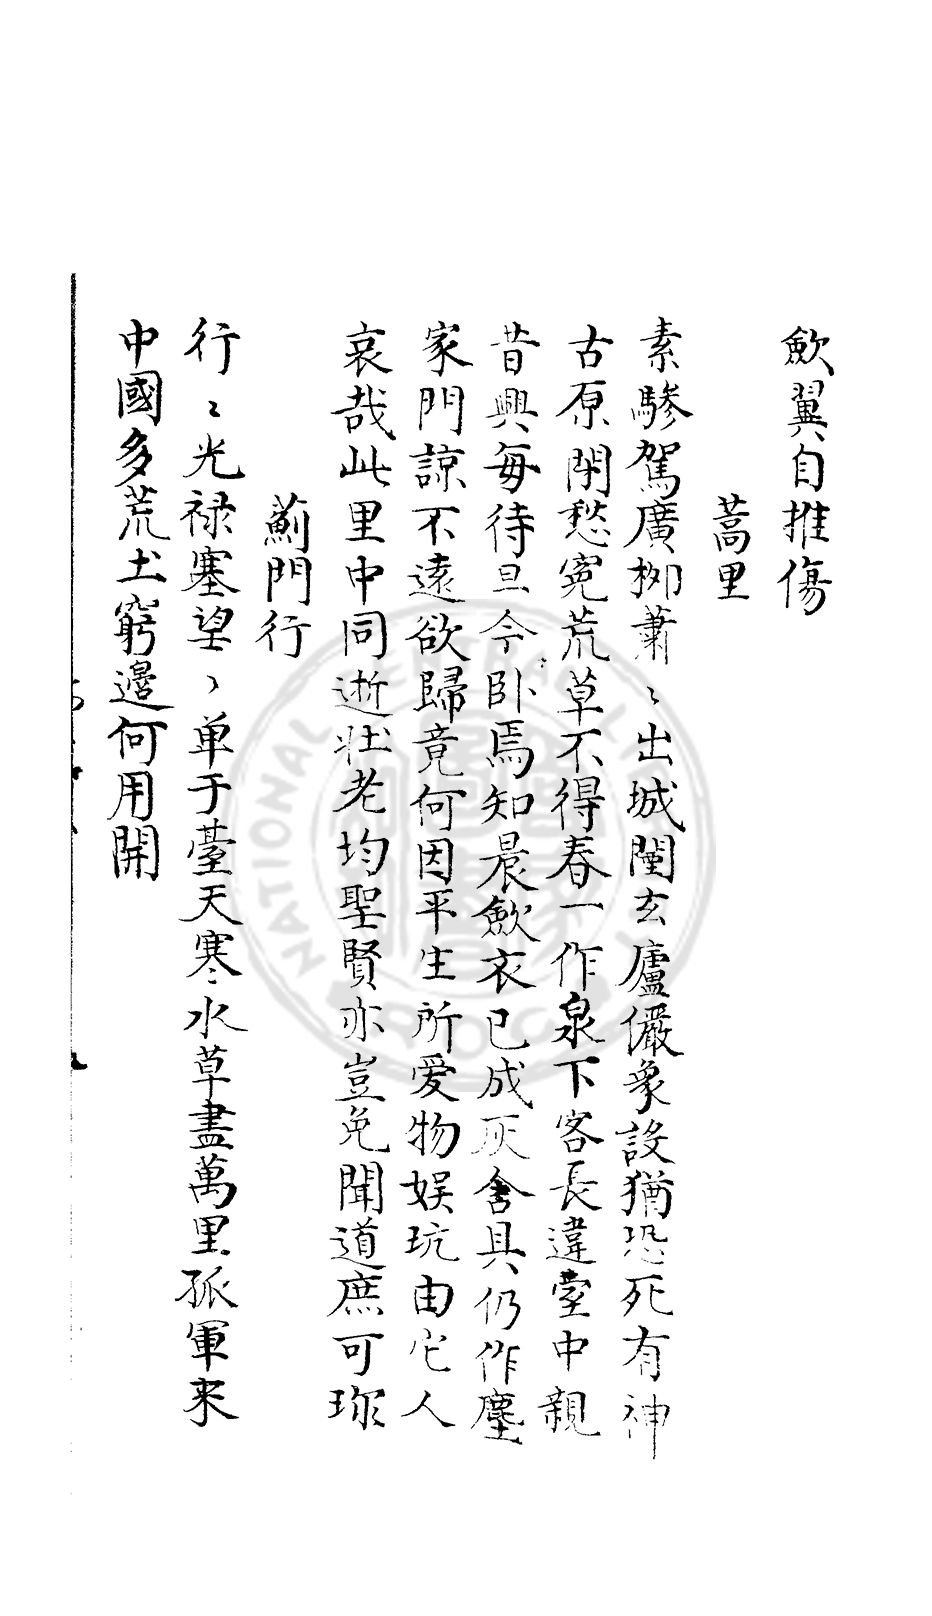 歛翼自推傷
蒿里
素驂駕廣柳蕭〻出城闉玄廬儼象設猶恐死有神
古原閑愁寃荒草不得春一作泉下客長違臺中親
昔興每待旦今卧焉知晨歛衣已成灰含具仍作塵
家門諒不遠欲歸竟何因平生所爱物娱玩由它人
哀哉此里中同逝壯老均聖賢亦豈免聞道庶可珎
薊門行
行〻光禄塞望〻单于臺天寒水草盡萬里孤軍来
中國多荒土窮邊何用開
NATIONAL CENTRAL LIBRARY